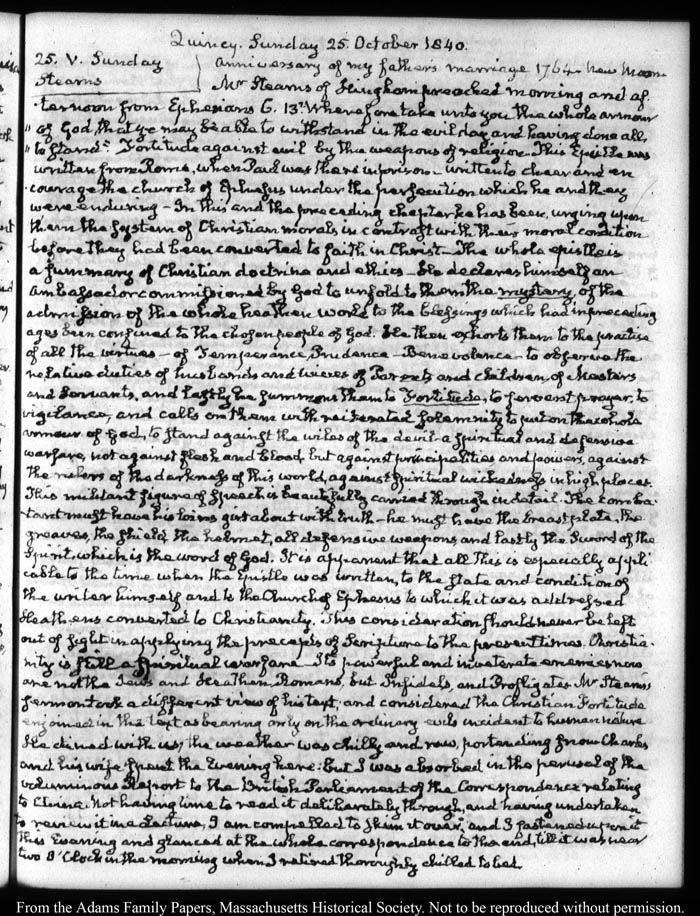 Quincy. Sunday 25. October 1840.
25. V. Sunday
Stearns
Anniversary of my fathers marriage 1764. New Moon
Mr Stearns of Hingham preached morning and af
ternoon from Ephesians 6. 13. "Wherefore take unto you the whole armour
"of God, that ye may be able to withstand in the evil day and having done all,
"to stand". Fortitude against evil by the weapons of religion. This Epistle was
written from Rome, when Paul was there in prison. written to cheer and en
courage the church of Ephesus under the persecution which he and they
were enduring – In this and the preceding chapter he has been, urging upon
them the system of Christian morals in contrast with their moral condition
before they had been converted to faith in Christ – The whole epistle is
a summary of Christian doctrine and ethics – He declares himself an
ambassador commissioned by God to unfold to them the mystery, of the
admission of the whole heathen world to the blessings which had in preceding
ages been confined to the chosen people of God. He then exhorts them to the practise
of all the virtues – of Temperance, Prudence – Benevolence – to observe the
relative duties of husbands and wives of Parents and children, of Masters
and Servants, and lastly he summons them to Fortitude, to fervent prayer, to
vigilance, and calls on them with reiterated solemnity to put on the whole
armour of God, to stand against the wiles of the devil – a spiritual and defensive
warfare, not against flesh and blood, but against principalities and powers, against
the rulers of the darkness of this world, against spiritual wickedness in high places.
This militant figure of speech is beautifully carried through in detail. The comba
tant must have his loins girt about with truth – he must have the breast plate, the
greaves, the shield, the helmet, all defensive weapons, and lastly the Sword of the
Spirit, which is the word of God. It is apparent that all this is especially appli
cable to the time when the Epistle was written, to the state and condition of
the writer himself and to the Church of Ephesus to which it was addressed
Heathens converted to Christianity. This consideration should never be left
out of sight in applying the precepts of Scripture to the present times. Christia
nity is still a spiritual warfare. Its powerful and inveterate enemies now
are not the Jews and Heathen Romans, but Infidels, and Profligates. Mr Stearns's
sermon took a different view of his text, and considered the Christian Fortitude
enjoined in the text as bearing only on the ordinary evils incident to human nature
He dined with us, the weather was chilly and raw, portending snow. Charles
and his wife spent the Evening here: but I was absorbed in the perusal of the
voluminous Report to the British Parliament of the Correspondence relating
to China. Not having time to read it deliberately through, and having undertaken
to review it in a Lecture, I am compelled to skim it over, and I fastened upon it
this Evening and glanced at the whole correspondence to the end, till it was near
two O'Clock in the morning when I retired thoroughly chilled to bed.
From the Adams Family Papers, Massachusetts Historical Society. Not to be reproduced without permission.